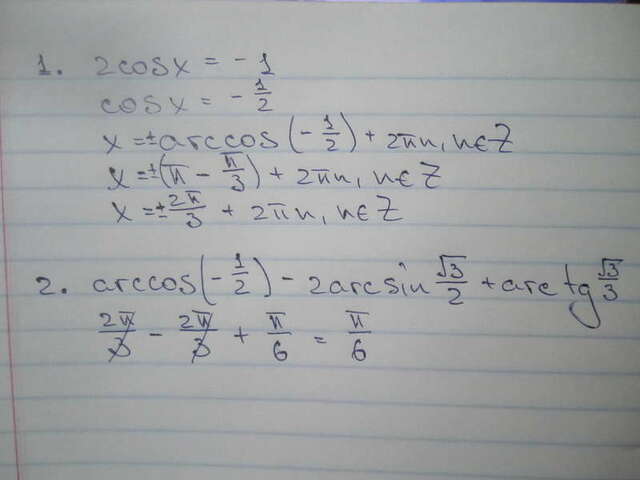 1. 2cosx = -1
cosx = - 1/2
x = ± arccos (- 1/2) + 2πn, n∈Z
x = ± (π - π/3) + 2πn, n∈Z
x = ± 2π/3 + 2πn, n∈Z
2. arccos(- 1/2) - 2arcsin √3/2 + arctg √3/3
2π/3 - 2π/3 + π/6 = π/6